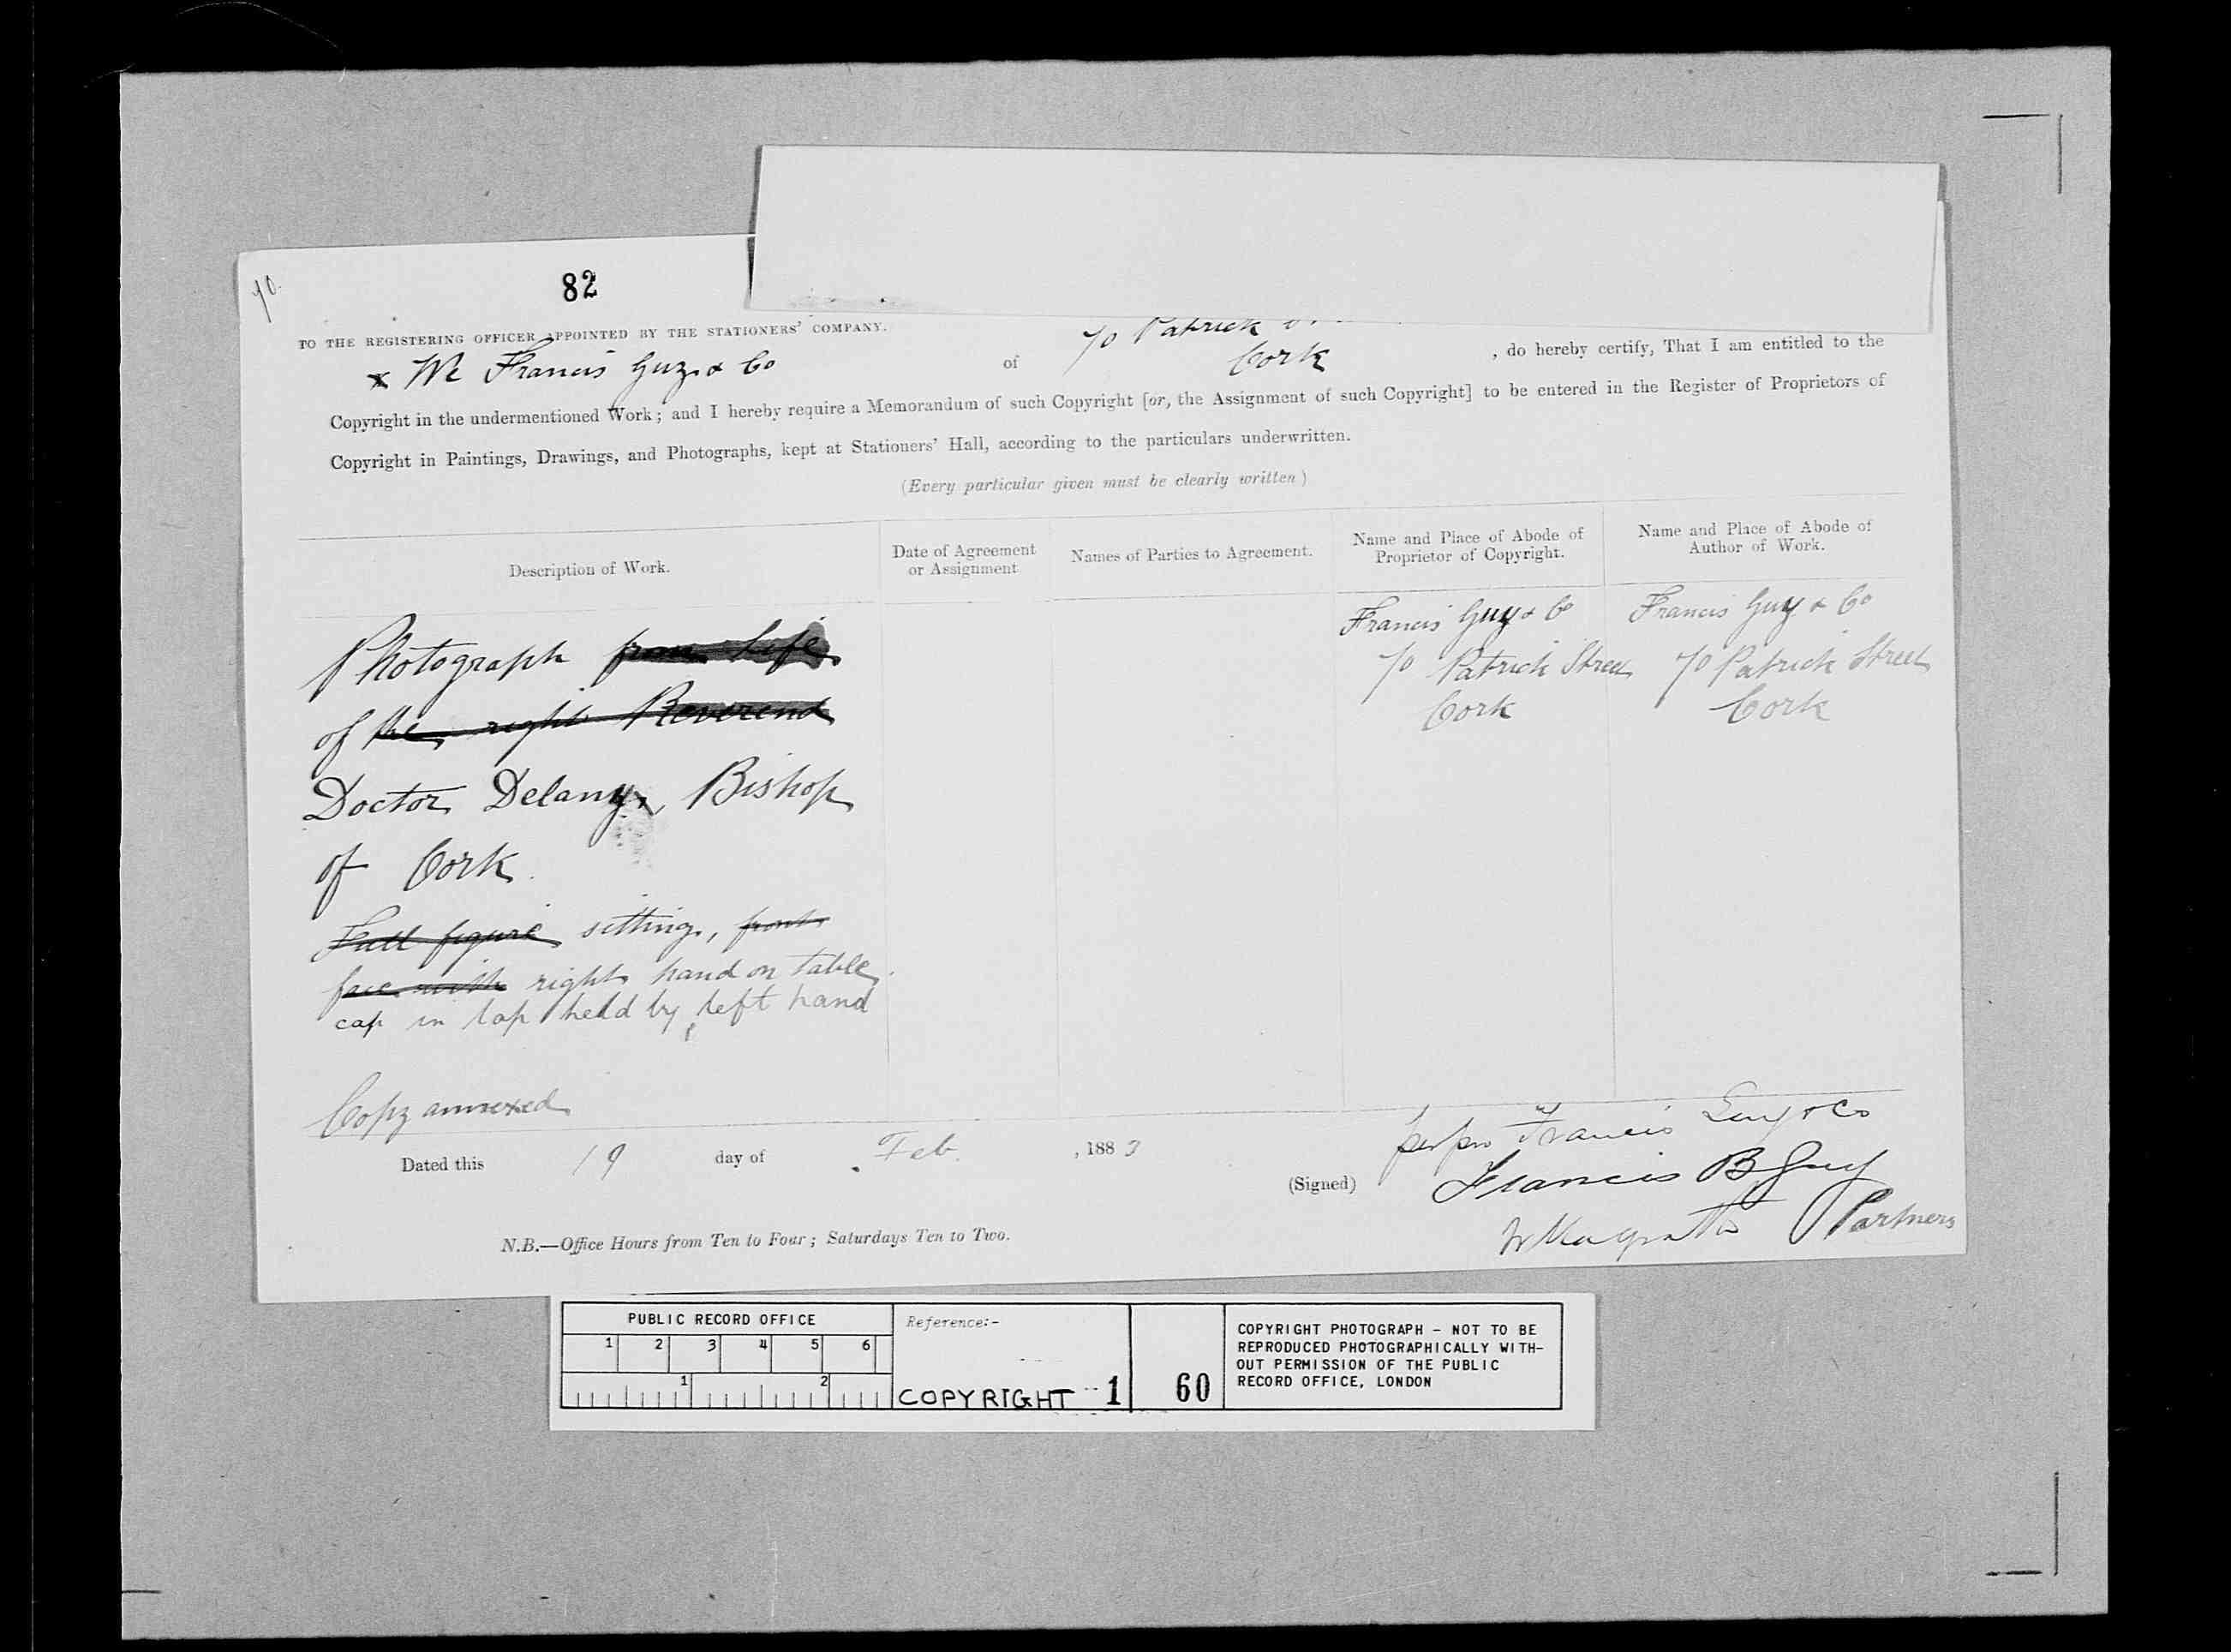 70
82
TO THE REGISTERING OFFICER APPOINTED BY THE STATIONERS' COMPANY.
x We Francis Guy & Co of 70 Patrick
Cork , do hereby certify, That I am entitled to the
Copyright in the undermentioned Work; and I hereby require a Memorandum of such Copyright [or, the Assignment of such Copyright] to be entered in the Register of Proprietors of
Copyright in Paintings, Drawings, and Photographs, kept at Stationers' Hall, according to the particulars underwritten.
(Every particular given must be clearly written)
Description of Work.
Date of Agreement
or Assignment
Names of Parties to Agreement.
Name and Place of Abode of
Proprietor of Copyright.
Name and Place of Abode of
Author of Work.
Photograph from Life
of the right Reverend
Doctor Delany, Bishop
of Cork.
Full figure sitting, front
face with right hand on table
cap in lap held by left hand
Copy annexed
Francis Guy & Co
70 Patrick Street
Cork
Francis Guy & Co
70 Patrick Street
Cork
Dated this 19 day of Feb. , 1883
(Signed)
per pro Francis Guy & Co
Francis B Guy
Partners
N.B.—Office Hours from Ten to Four; Saturdays Ten to Two.
PUBLIC RECORD OFFICE
1 2 3 4 5 6
1 2
Reference:-
COPYRIGHT 1 60
COPYRIGHT PHOTOGRAPH - NOT TO BE
REPRODUCED PHOTOGRAPHICALLY WITH-
OUT PERMISSION OF THE PUBLIC
RECORD OFFICE, LONDON